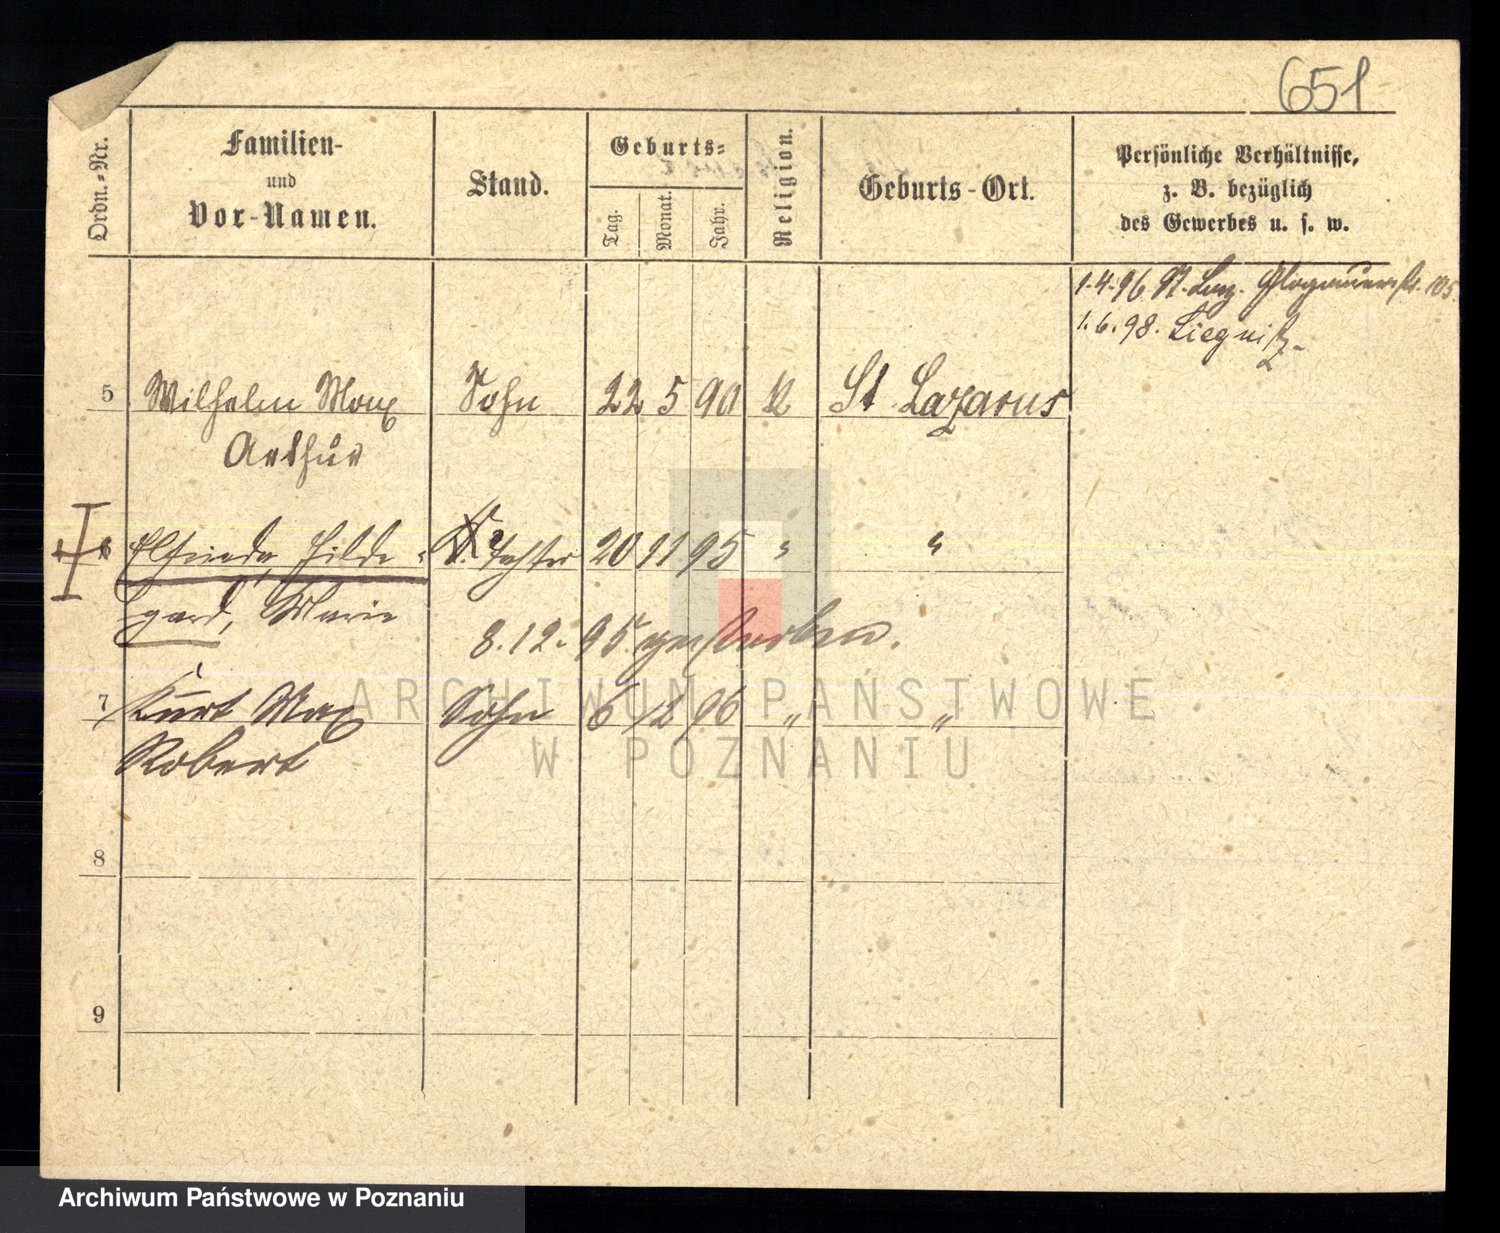 651
Ordn.-Nr.
Familien-
und
Vor-Namen.
Stand.
Geburts-
Tag.
Monat.
Jahr.
Religion.
Geburts-Ort.
Persönliche Verhältnisse,
z. B. bezüglich
des Gewerbes u. s. w.
1.4.96 St. Laz. Glogauerstr. 105.
1.6.98. Liegnitz
5 Wilhelm Max Sohn 22 5 90 St Lazarus
Arthur
6 Elfrieda, Hilde- Tochter 20 11 95 " "
gard, Marie
8.12.95 gestorben.
7 Kurt Max Sohn 6 12 96 " "
Robert
8
9
ARCHIWUM PAŃSTWOWE
W POZNANIU
Archiwum Państwowe w Poznaniu